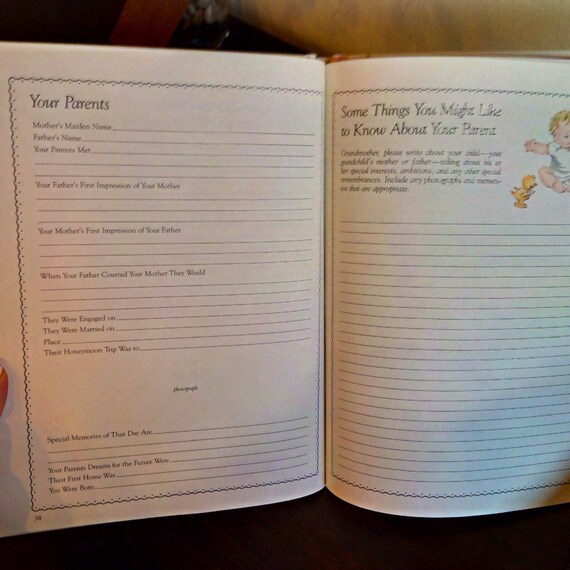 Your Parents
Mother's Maiden Name
Father's Name
Your Parents Met
Your Father's First Impression of Your Mother
Your Mother's First Impression of Your Father
When Your Father Courted Your Mother They Would
They Were Engaged on
They Were Married on
Place
Their Honeymoon Trip Was to
photograph
Special Memories of That Day Are
Your Parents Dreams for the Future Were
Their First Home Was
You Were Born
38
Some Things You Might Like
to Know About Your Parent
Grandmother, please write about your child—your
grandchild's mother or father—telling about his or
her special interests, ambitions, and any other special
remembrances. Include any photographs and memen-
tos that are appropriate.